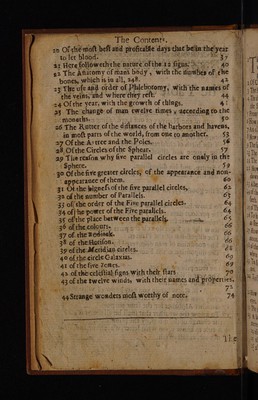 The Contents.
20 Of the most best and profitable days that be in the year
to let blood. 37
21 Here followeth the nature of the 12 signs. 40
22 The Anatomy of mans body, with the number of the
bones, which is in all, 248. 42
23 The use and order of Phlebotomy, with the names of
the veins, and where they rest. 44
24 Of the year, with the growth of things. 45
25 The change of man twelve times, according to the
months. 50
26 The Rutter of the distances of the harbors and havens,
in most parts of the world, from one to another. 53
27 Of the Axtree and the Poles. 56
28 Of the Circles of the Sphear. 57
29 The reason why five parallel circles are onely in the
Sphere. 59
30 Of the five greater circles, of the appearance and non-
appearance of them. 60
31 Of the bigness of the five parallel circles, 62
32 of the number of Parallels. 63
33 of the order of the Five parallel circles. 64
34 of the power of the Five parallels. 64
35 of the place between the parallels. 65
36 of the colours. 66
37 of the Zodiack. 66
38 of the Horizon. 66
39 of the Meridian circles. 68
40 of the circle Galaxias. 69
41 of the five Zones. 69
42 of the celestial signs with their stars 70
43 of the twelve winds with their names and properties.
72
44 Strange wonders most worthy of note. 74